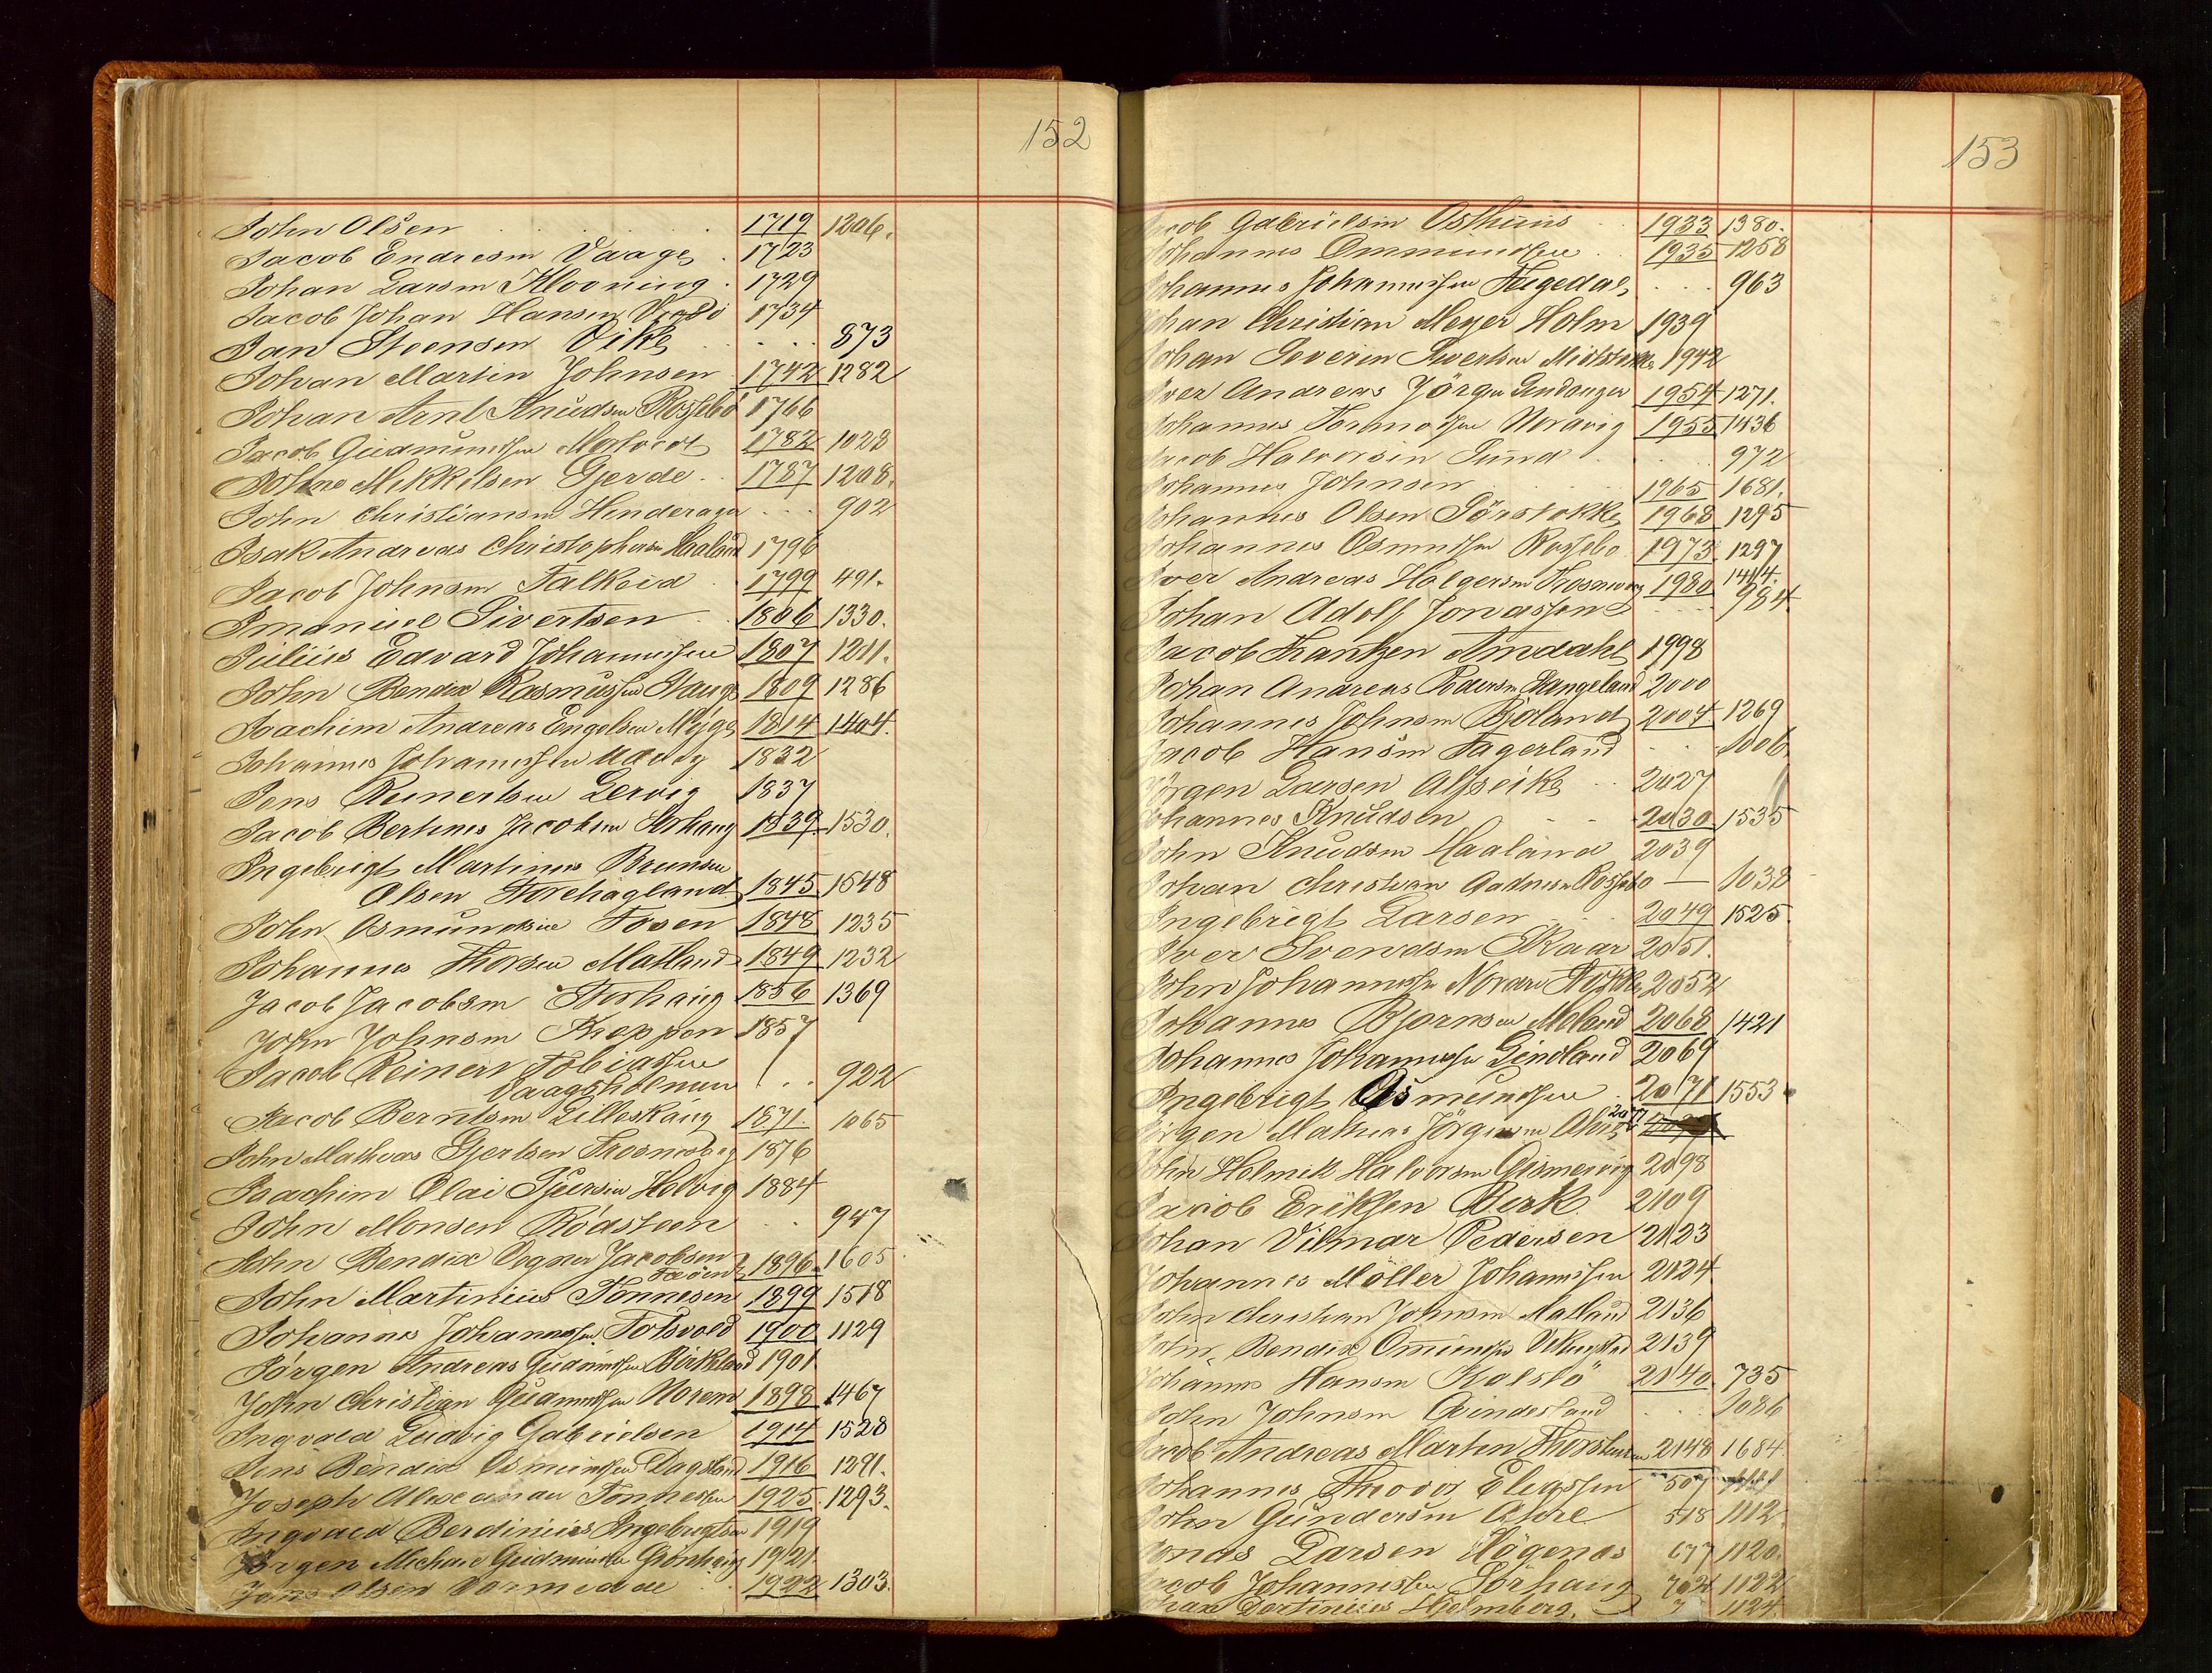 152
John Olsen 1719 1206.
Jacob Endresen Vaage 1723
Johan Larsen Klovning 1729
Jacob Johan Hansen 1734
Jan Steensen Vike 873
Johan Martin Johnsen 1742 1282
Johan Arnt Knudsen Rossebö 1766
Jacob Gudmundsen 1782 1028
Johne Mikkelsen Gjerde 1787 1208.
John Christiansen Hinderager 902
Isak Andreas Christophersen Haaland 1796
Jacob Johnsen Falkeid 1799 491.
Imanuel Sivertsen 1806 1330.
Julius Edvard Johannessen 1807 1211.
John Bendix Rasmussen Hauge 1809 1286
Joachim Andreas Engelsen 1814 1404.
Johannes Johannessen 1832
Jens Reinertsen Lervig 1837
Jacob Bertinus Jacobsen Storhaug 1839 1530.
Ingebrigt Martinus Brunsen
Olsen Storehagland 1845 1548
John Osmundsen Tosen 1848 1235
Johannes Thorsen Matland 1849 1232
Jacob Jacobsen Storhaug 1856 1369
John Johnsen Kroppen 1857
Jacob Reinert Tobiassen
Vaagsholmen 922
Jacob Berntsen Lilleskaug 1871. 1065
John Mathias Gjertsen 1876
Joachim Olai 1884
John Monsen Rödsteen 947
John Bendix Vogner Jacobsen
1896 1605
John Martinius Tönnesen 1899 1518
Johannes Johannessen Totsvold 1900 1129
Jörgen Andreas Gudmundsen Birkeland 1901
John Christian Gudmundsen Norem 1898 1467
Ingvald Ludvig Gabrielsen 1914 1528
Jens Bendix Osmundsen Dagsland 1916 1291.
Joseph Alexander Tönnesen 1925 1293.
Ingvald Berdinius Ingebrigtsen 1919
Jörgen Michael Gudmundsen Grönhaug 1921.
Jens Olsen Vormedal 1922 1303.
153
Jacob Gabrielsen Osthuus 1933 1380.
Johannes Ommundsen 1935 1258
Johannes Johannessen 963
Johan Christian Meyer Holm 1939
Johan Severin Sivertsen 1942
Iver Andreas Jörgen 1954 1271.
Johannes Tormodsen Nordvig 1955 1436
Jacob Halvorsen Sund 972
Johannes Johnsen 1965 1681.
Johannes Olsen Sörstokke 1968 1295
Johannes Osmundsen Rossebö 1973 1297
Iver Andreas Holgersen 1980 1414.
Johan Adolf Jonassen 984
Jacob Frantzen Amdahl 1998
Johan Andreas Pedersen Stangeland 2000
Johannes Johnsen Bjöland 2004 1269
Jacob Hansen Fagerland 1006
Jörgen Larsen Alfseike 2027
Johannes Knudsen 2030 1535
John Knudsen Haaland 2039
Johan Christian Aadnesen Rossebö — 1038
Ingebrigt Larsen 2049 1525.
Iver Svendsen Skaar 2051.
John Johannessen Nordre Stokke 2052
Johannes Bjornsen Meland 2068 1421
Johannes Johannessen Lindland 2069
Ingebrigt Osmundsen 2071 1553
Jörgen Mathias Jörgensen
John Holmek Halvorsen Gismervig 2098
Jacob Eriksen Birk 2109
Johan Vilmar Pedersen 2123
Johannes Möller Johannessen 2124
John Christian Johnsen Matland 2136
John Bendix 2139
Johannes Hansen Kolstö 2140 735
John Johnsen Qvindesland 1086
Jacob Andreas Martin Thorstensen 2148 1684.
Johannes Theodor 507
John Gundersen 518 1112.
Jonas Larsen Högenes 677 1120.
Jacob Johannessen Sörhaug 1122
Johan Hjelmberg. 1124.